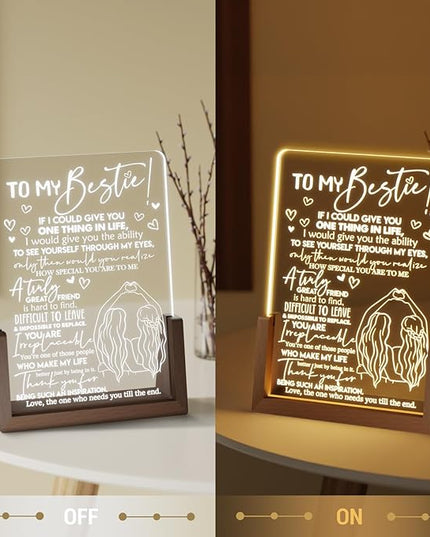 TO MY Bestie!
IF I COULD GIVE YOU
ONE THING IN LIFE,
I would give you the ability
TO SEE YOURSELF THROUGH MY EYES,
only then would you realize
HOW SPECIAL YOU ARE TO ME
A truly
GREAT FRIEND
is hard to find,
DIFFICULT TO LEAVE
& IMPOSSIBLE TO REPLACE.
YOU ARE
Irreplaceable
You're one of those people
WHO MAKE MY LIFE
better just by being in it.
Thank you for
BEING SUCH AN INSPIRATION.
Love, the one who needs you till the end.
OFF
TO MY Bestie!
IF I COULD GIVE YOU
ONE THING IN LIFE,
I would give you the ability
TO SEE YOURSELF THROUGH MY EYES,
only then would you realize
HOW SPECIAL YOU ARE TO ME
A truly
GREAT FRIEND
is hard to find,
DIFFICULT TO LEAVE
& IMPOSSIBLE TO REPLACE.
YOU ARE
Irreplaceable
You're one of those people
WHO MAKE MY LIFE
better just by being in it.
Thank you for
BEING SUCH AN INSPIRATION.
Love, the one who needs you till the end.
ON